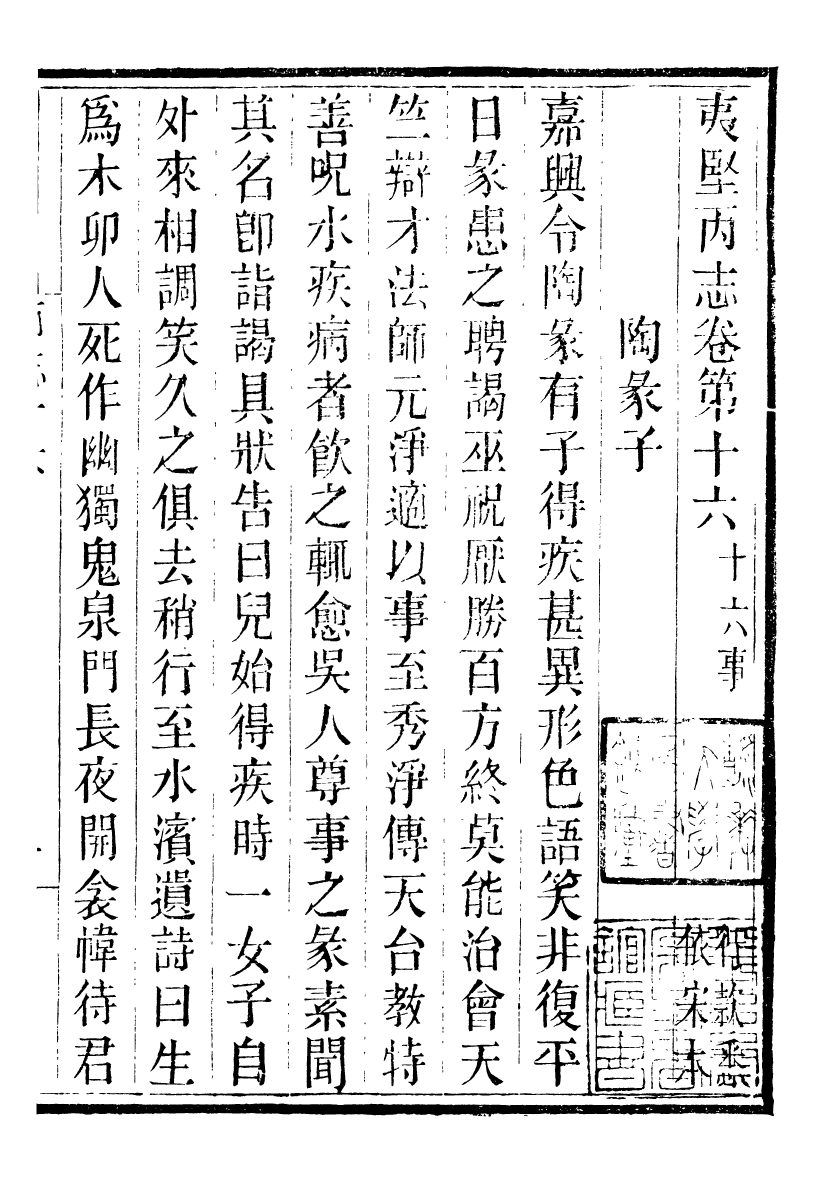 夷堅丙志卷第十六 十六事
行款悉
依宋本
陶彖子
嘉興令陶彖有子得疾甚異形色語笑非復平
日彖患之聘謁巫祝厭勝百方終莫能治會天
竺辯才法師元淨適以事至秀淨傳天台教特
善呪水疾病者飲之輒愈吳人尊事之彖素聞
其名卽詣謁具狀告曰兒始得疾時一女子自
外來相調笑久之俱去稍行至水濱遺詩曰生
爲木卯人死作幽獨鬼泉門長夜開衾幃待君